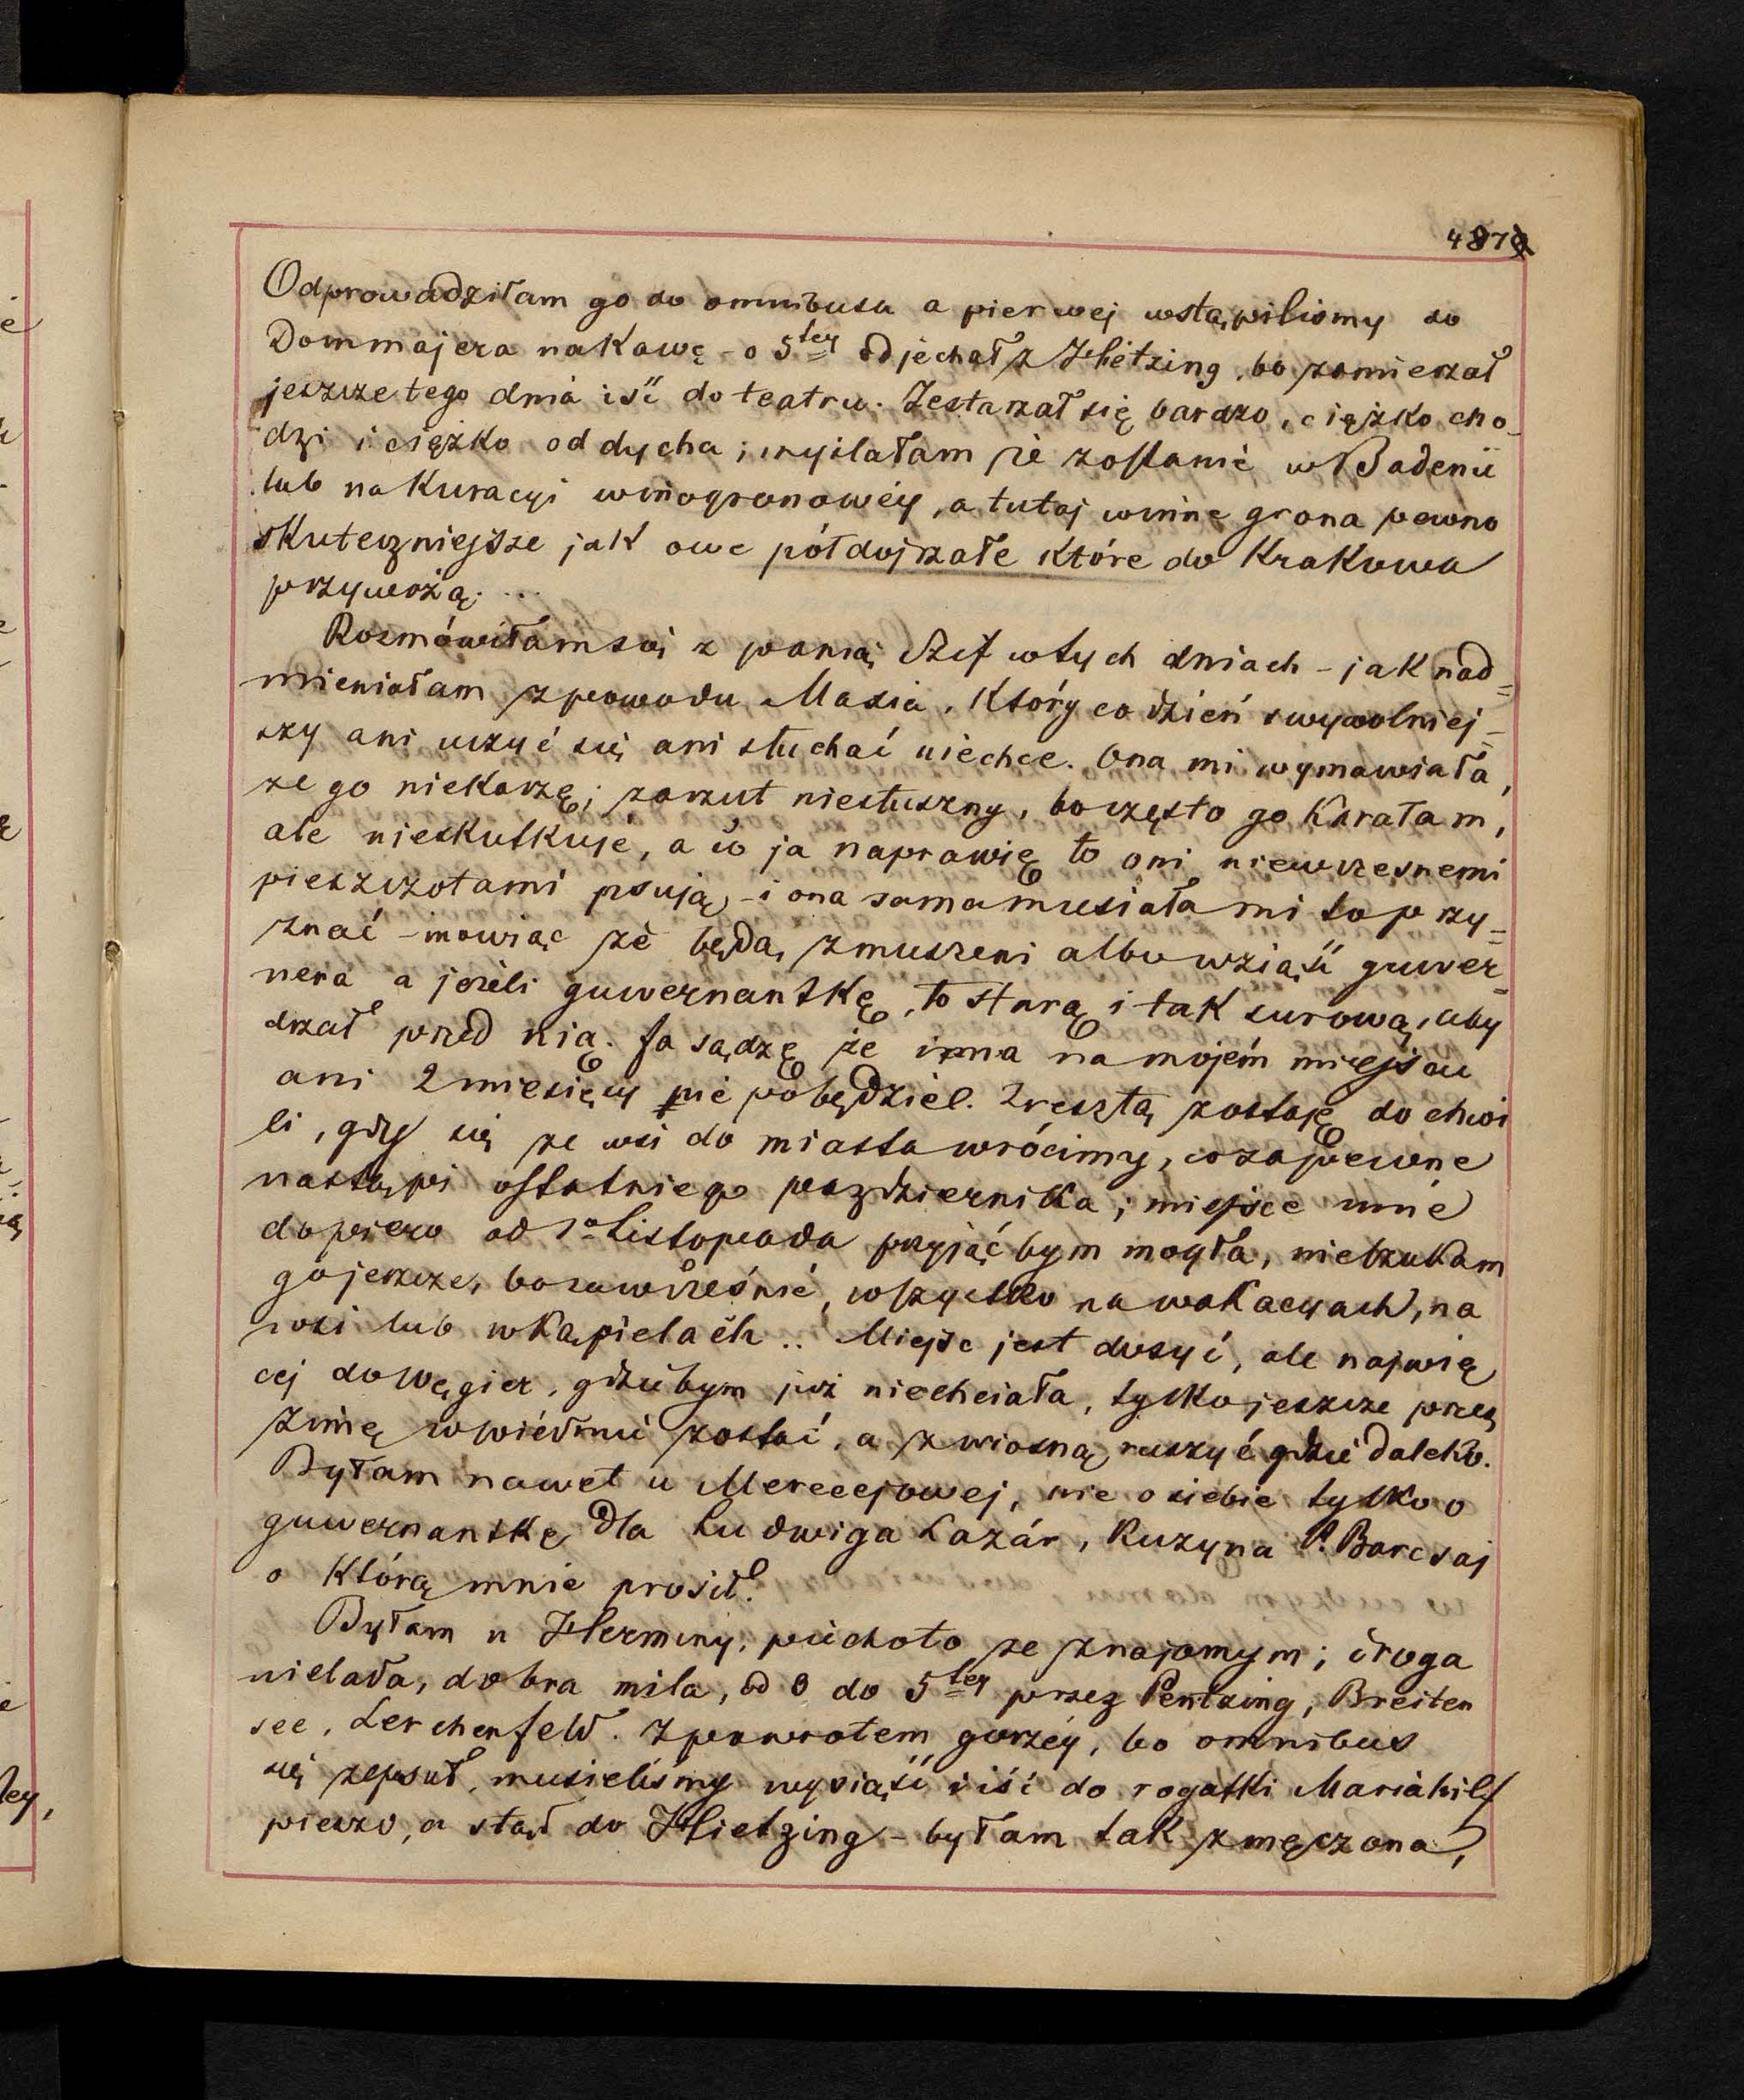 487
Odprowadziłam go do omnibusu a pierwej wstąpiliśmy do
Dommajera na kawę – o 5tey odjechał z Hietzing, bo zamierzał
jeszcze tego dnia iść do teatru. Zestarzał się bardzo, ciężko cho-
dzi i ciężko oddycha; myślałam że zostanie w Badenie
lub na kuracyi winogronowéy, a tutaj winne grona pewno
skuteczniejsze jak owe półdojrzałe które do Krakowa
przywożą....
Rozmówiłam się z panią Szif w tych dniach – jak nad=
mieniałam z powodu Maxia, który co dzień swywolniej-
szy ani uczyć się ani słuchać niechce. Ona mi wymawiała,
że go niekarzę; zarzut niesłuszny, bo często go karałam,
ale nieskutkuje, a co ja naprawię to oni niewczesnemi
pieszczotami psują – i ona sama musiała mi to przy=
znać – mówiąc że będą zmuszeni albo wziąść guwer=
nera a jeżeli guwernantkę, to starą i tak surową, aby
drżał przed nią. Ja sądzę że inna na mojém miejscu
ani 2 miesięcy nie pobędzie. Zresztą zostaję do chwi
li, gdy się ze wsi do miasta wrócimy, co zapewne
nastąpi ostatniego pazdziernika; miejsce inne
dopiero od 1o Listopada przyjąć bym mogła, nieszukam
go jeszcze, bo zawcześnie, wszystko na wakacyach, na
wsi lub w kąpielach.. Miejsc jest dosyć, ale najwię
cej do Węgier, gdzie bym już niechciała, tylko jeszcze przez
zimę w Wiédniu zostać, a z wiosną ruszyć gdzie daleko.
Byłam nawet u Merecejowej, nie o siebie tylko o
guwernantkę dla Ludwiga Lazár, kuzyna P. Barcsaj
o którą mnie prosił.
Byłam u Herminy, piechoto ze znajomym; droga
nielada, dobra mila, od 3 do 5tey przez Pentzing, Breiten
see, Lerchenfeld. Z powrotem gorzéy, bo omnibus
się zepsuł, musieliśmy wysiąść i iść do rogatki Mariahilf
pieszo, a stąd do Hietzing – byłam tak zmęczona,